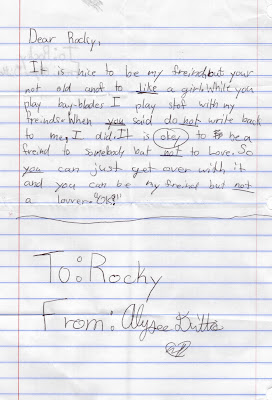 Dear Rocky,
It is nice to be my freind, but your
not old anof to like a girl. While you
play bay-blades I play stof with my
freinds. When you said do not write back
to me, I did. It is okey to be a
freind to somebody but not to love. So
you can just get over with it
and you can be my freind but not
a lovver. "OK?!"
To: Rocky
From: Alysee